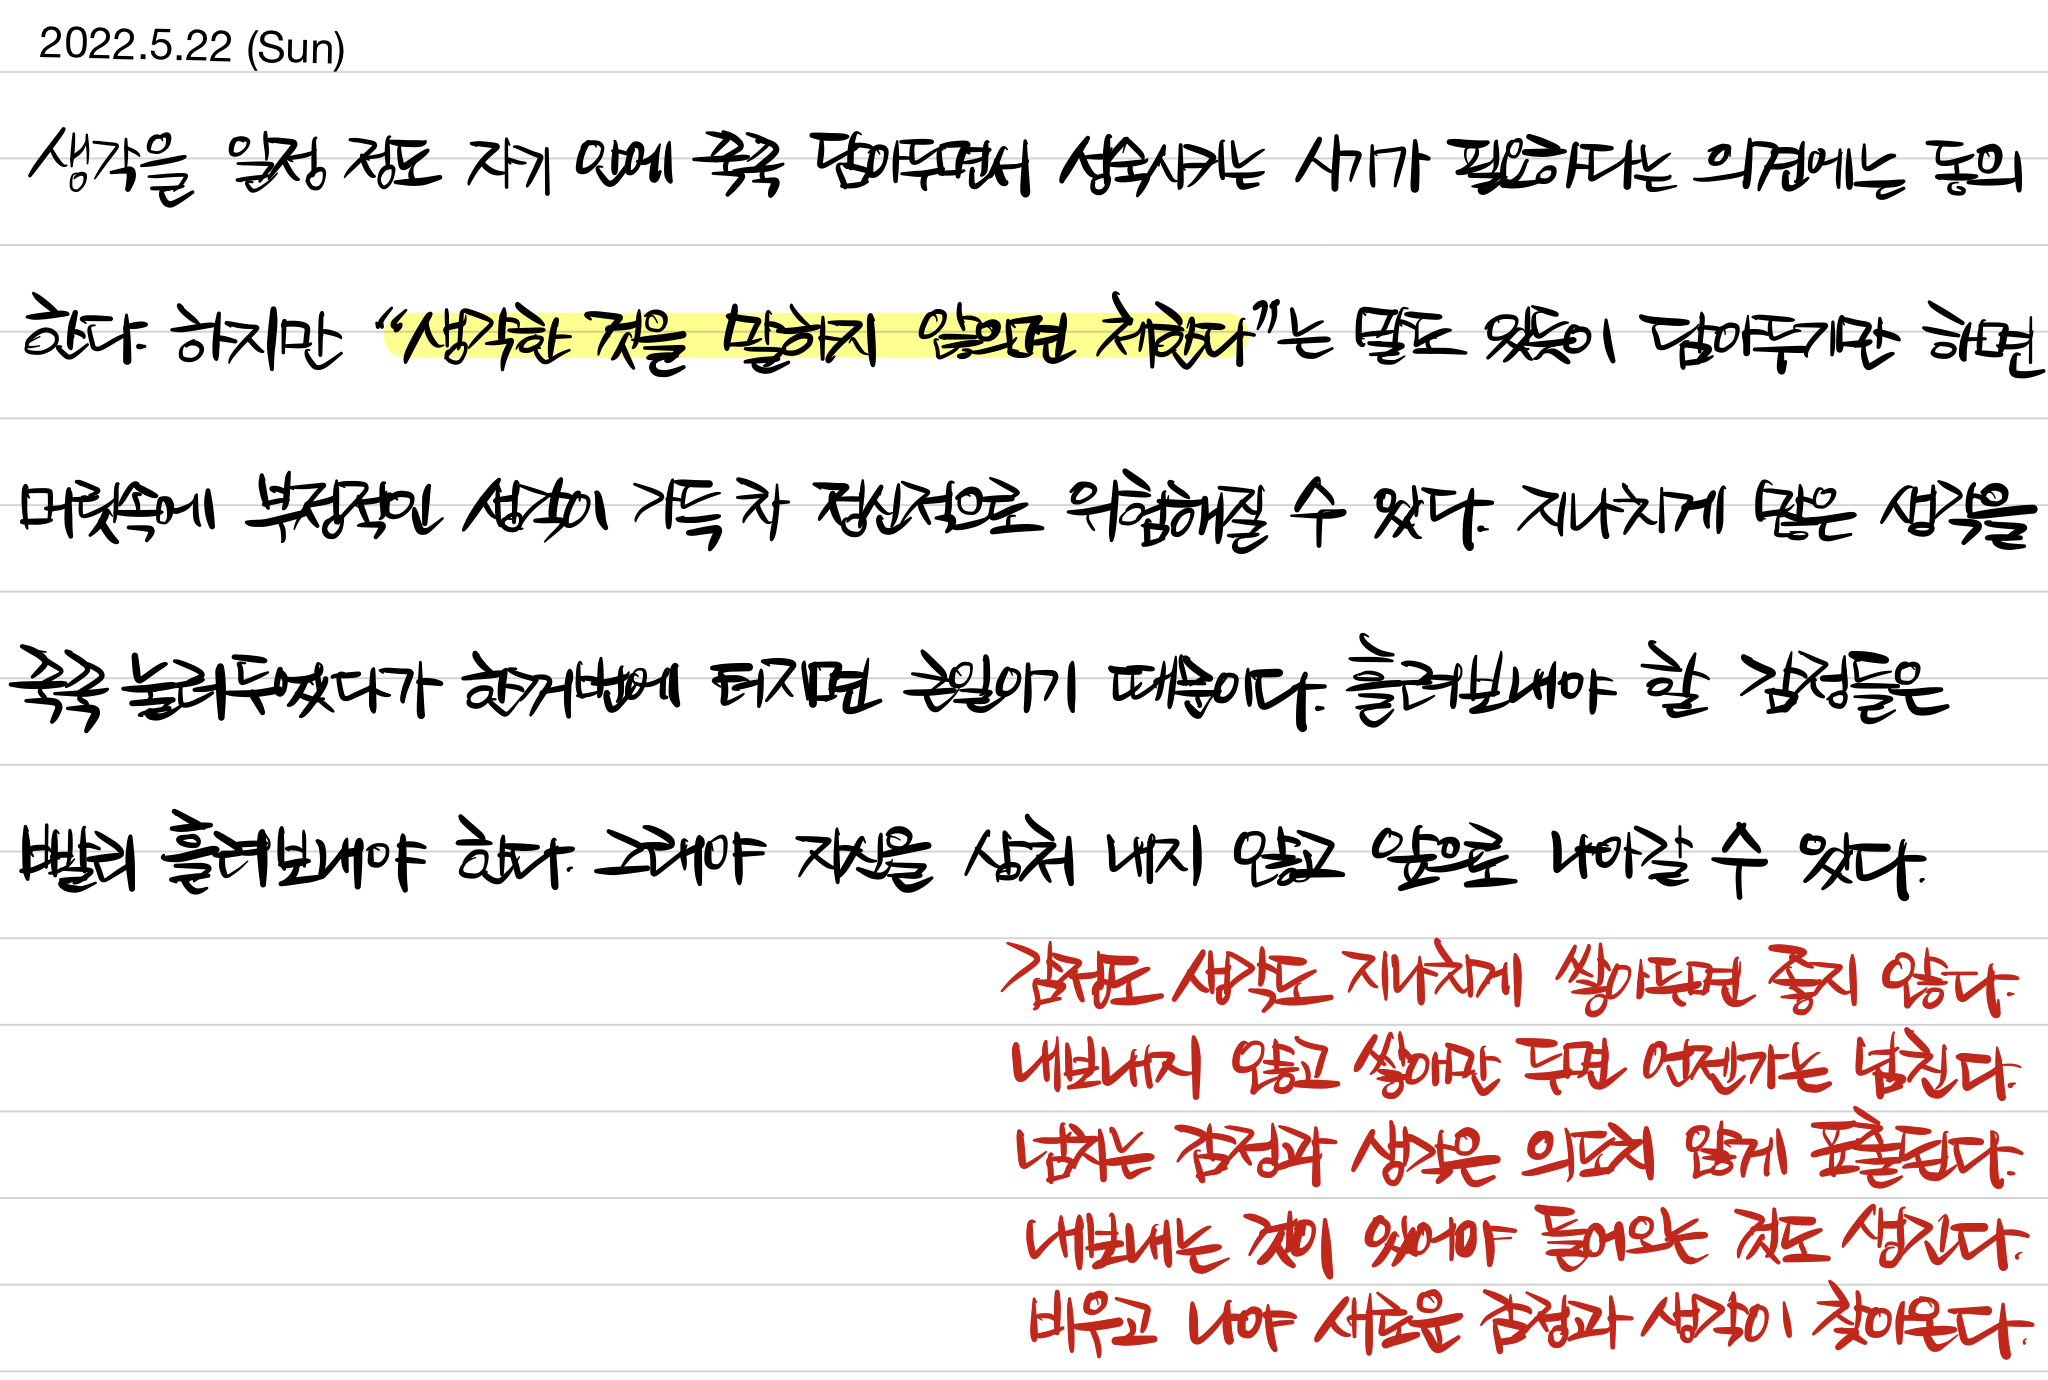 2022.5.22 (Sun)
생각을 일정 정도 자기 안에 꾹꾹 담아두면서 성숙시키는 시기가 필요하다는 의견에는 동의
한다. 하지만 “생각한 것을 말하지 않으면 체한다”는 말도 있듯이 담아두기만 하면
머릿속에 부정적인 생각이 가득 차 정신적으로 위험해질 수 있다. 지나치게 많은 생각을
꾹꾹 눌러두었다가 한꺼번에 터지면 큰일이기 때문이다. 흘려보내야 할 감정들은
빨리 흘려보내야 한다. 그래야 자신을 상처 내지 않고 앞으로 나아갈 수 있다.
감정도 생각도 지나치게 쌓아두면 좋지 않다.
내보내지 않고 쌓아만 두면 언젠가는 넘친다.
넘치는 감정과 생각은 의도치 않게 표출된다.
내보내는 것이 있어야 들어오는 것도 생긴다.
비우고 나야 새로운 감정과 생각이 찾아온다.